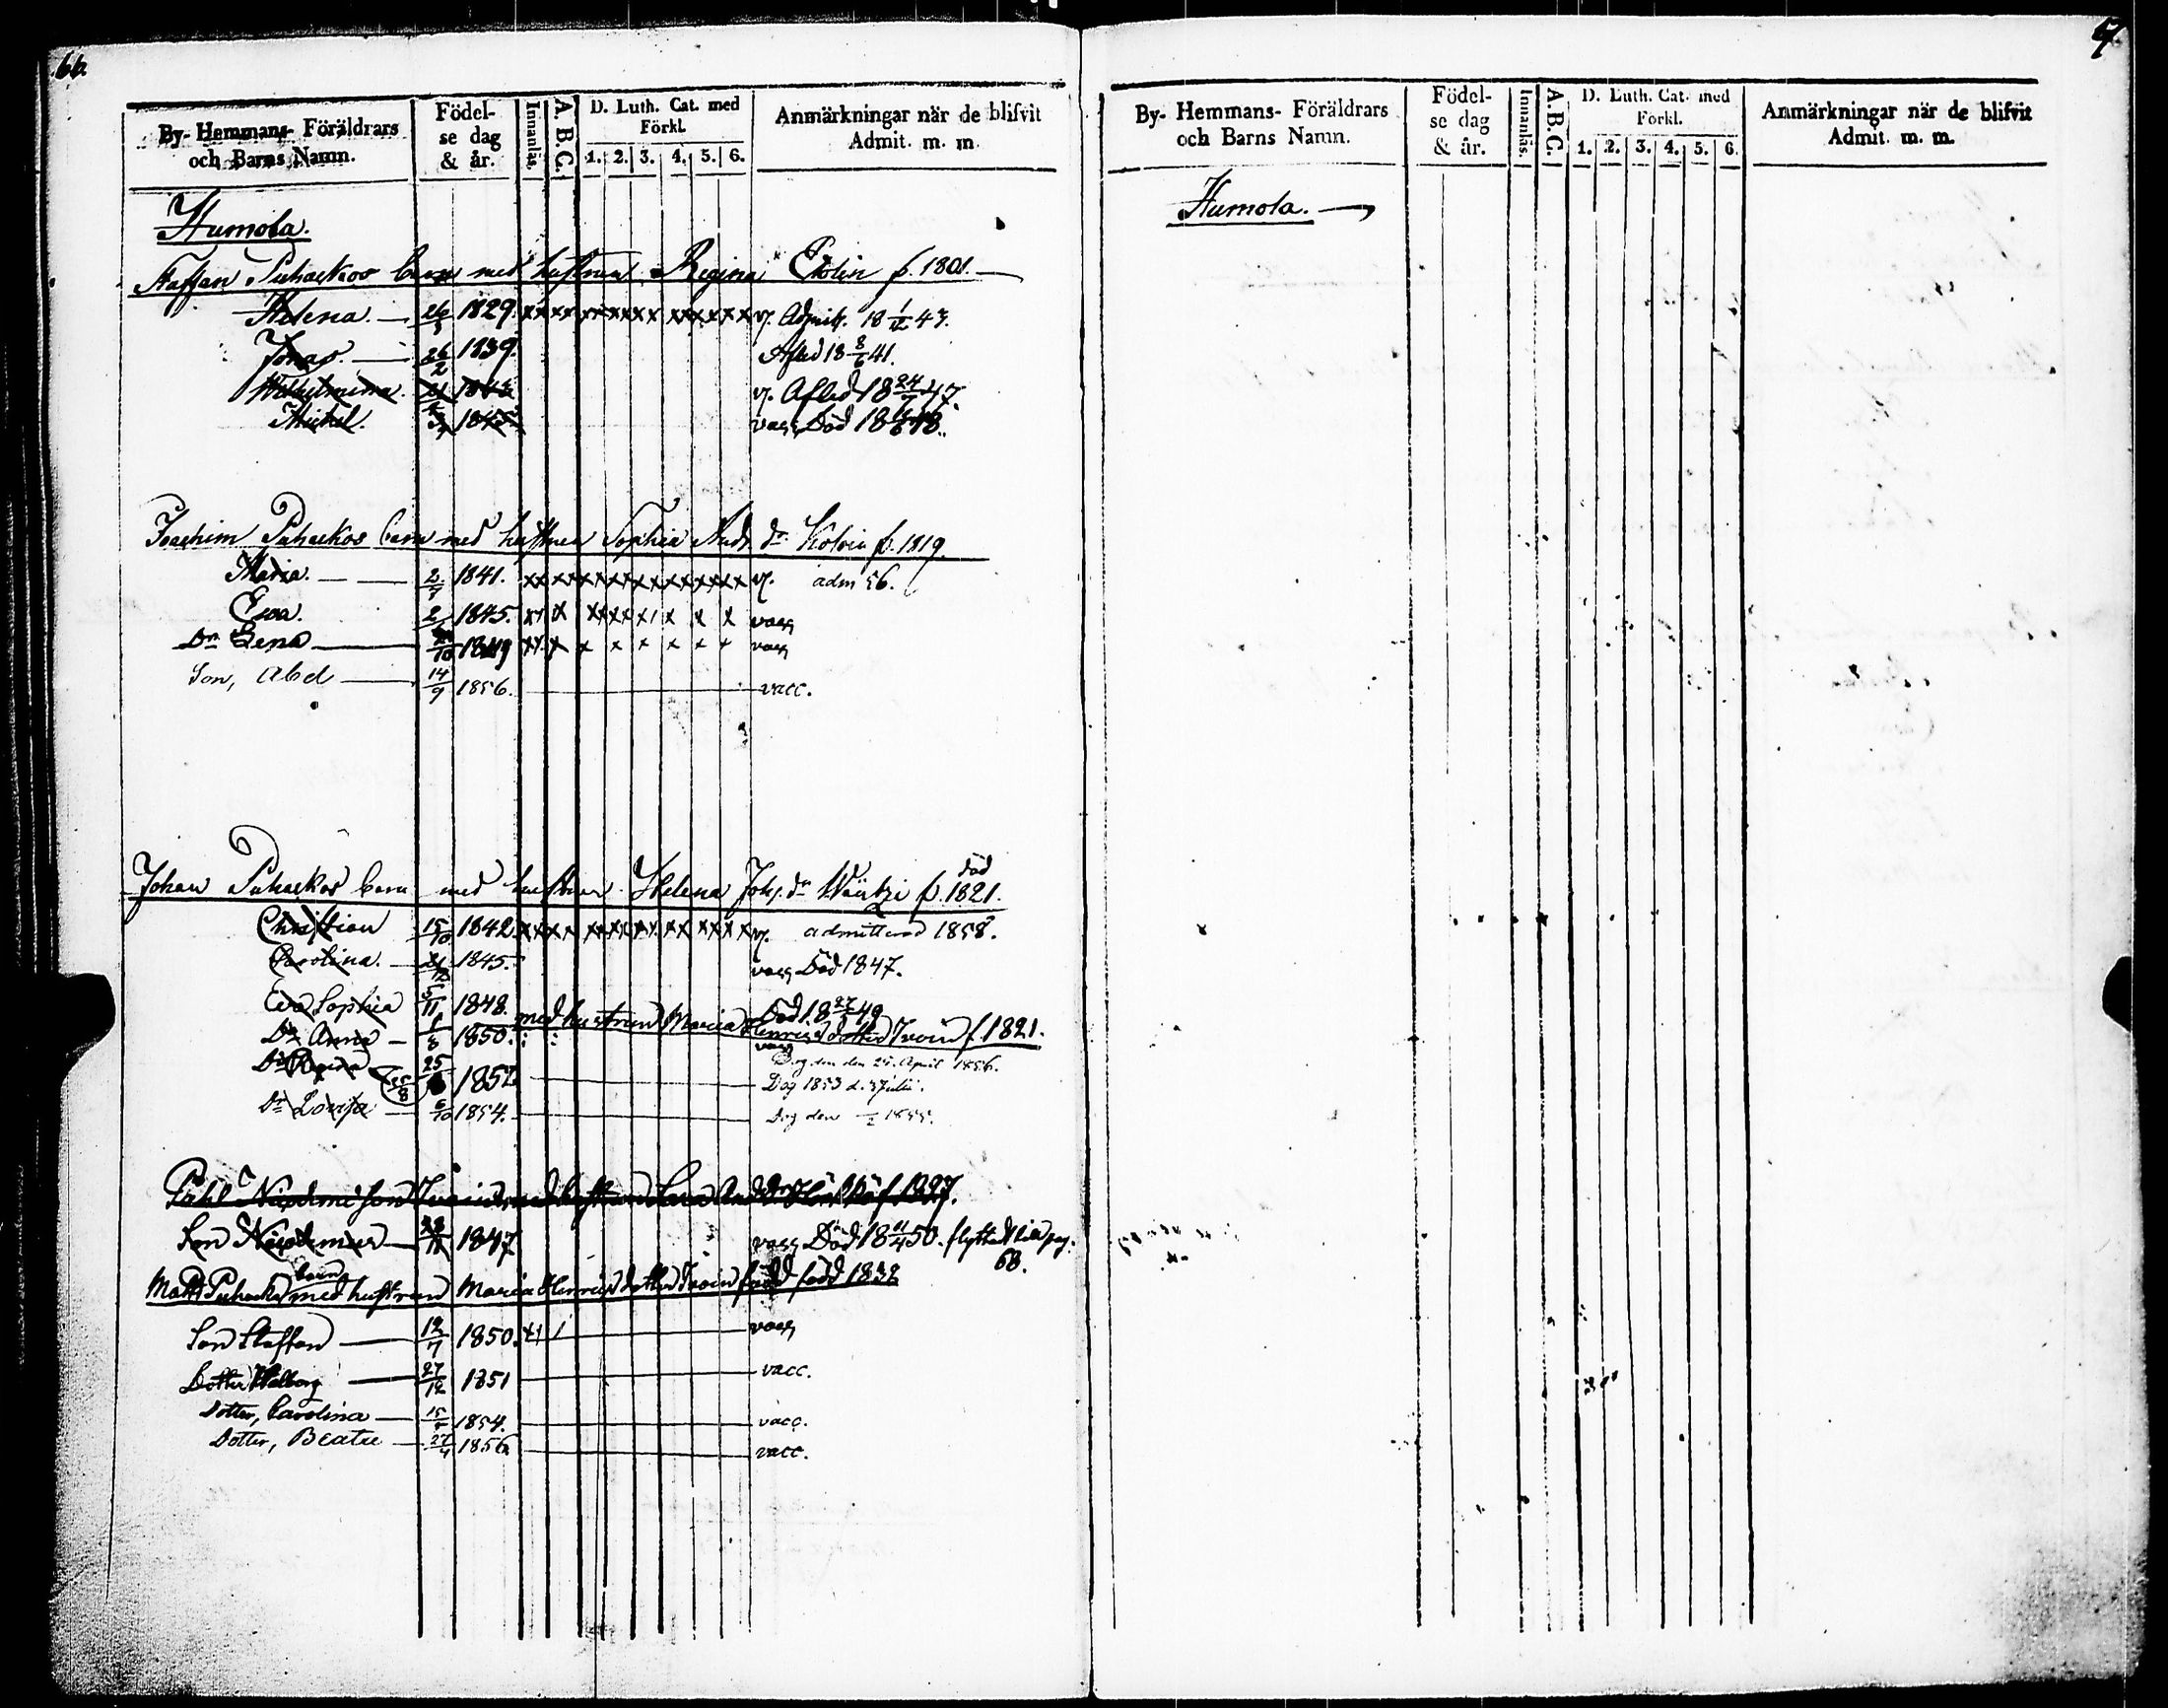 66.
By- Hemmans- Föräldrars
och Barns Namn.
Födel-
se dag
& år.
Innanläs.
A. B. C.
D. Luth. Cat. med
Förkl.
1. 2. 3. 4. 5. 6.
Anmärkningar när de blifvit
Admit. m. m.
Humola.
Staffan Puhackos barn med hustrun Regina f. 1801.
Helena. 1829. xxxx xxxxxx xxxxxx v. Admit. 18 43.
Jonas. 26/2 1839. Afled 18 8/6 41.
Wilhelmina. v. Afled 18 24 47.
Michel. 1845 vacc Död 18 48.
Joachim Puhackos barn med hustrun Sophia And. dr f. 1819.
Maria. 1841. xxxxxxxxxxxxxxxx v. adm 56.
Eva. 1845. xx x xxxxxx x x x vacc
Dr Lena 1849 xx x x x x x x x vacc
Son, Abel 14/9 1856. vacc.
Johan Puhackos barn med hustrun Helena Joh. dr f. 1821. död
Christian 15/10 1842 xxxx xxxxxx xx xxxx v. admitterad 1858.
Carolina. 1845. vacc Död 1847.
Eva Sophia 5/11 1848. Död 18 27 49
med hustrun Maria Henriksdotter f. 1821.
Dr Anna 1/8 1850. vacc Dog den 25. April 1856.
Dr 25/8 1852 Dog 1853 d. Julii.
Dr Lovisa 6/10 1854. Dog den 1855.
Påhl med hustrun Lena f. 1827.
Son Nicodemus 1847 vacc Död 18 11/4 50. flyttad till pag.
68.
Matts Puhacko barn med hustrun Maria Henriksdotter född 1832
Son Staffan 12/7 1850. vacc
Dotter Walborg 27/12 1851 vacc.
Dotter, Carolina 15 1854. vacc.
Dotter, Beata 27/4 1856 vacc.
67.
By- Hemmans- Föräldrars
och Barns Namn.
Födel-
se dag
& år.
Innanläs.
A. B. C.
D. Luth. Cat. med
Förkl.
1. 2. 3. 4. 5. 6.
Anmärkningar när de blifvit
Admit. m. m.
Humola.